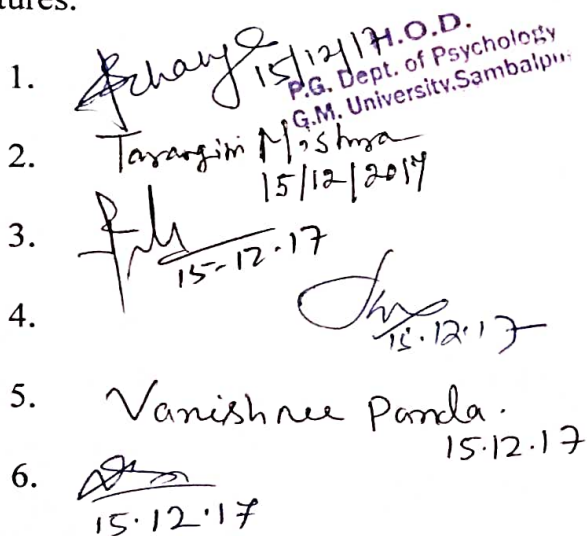 tures:
1. 15/12/17 H.O.D.
P.G. Dept. of Psychology
G.M. University, Sambalpur
2. Tarangini Mishra
15/12/2017
3.
15-12-17
4.
15.12.17
5. Vanishree Panda.
15.12.17
6.
15.12.17